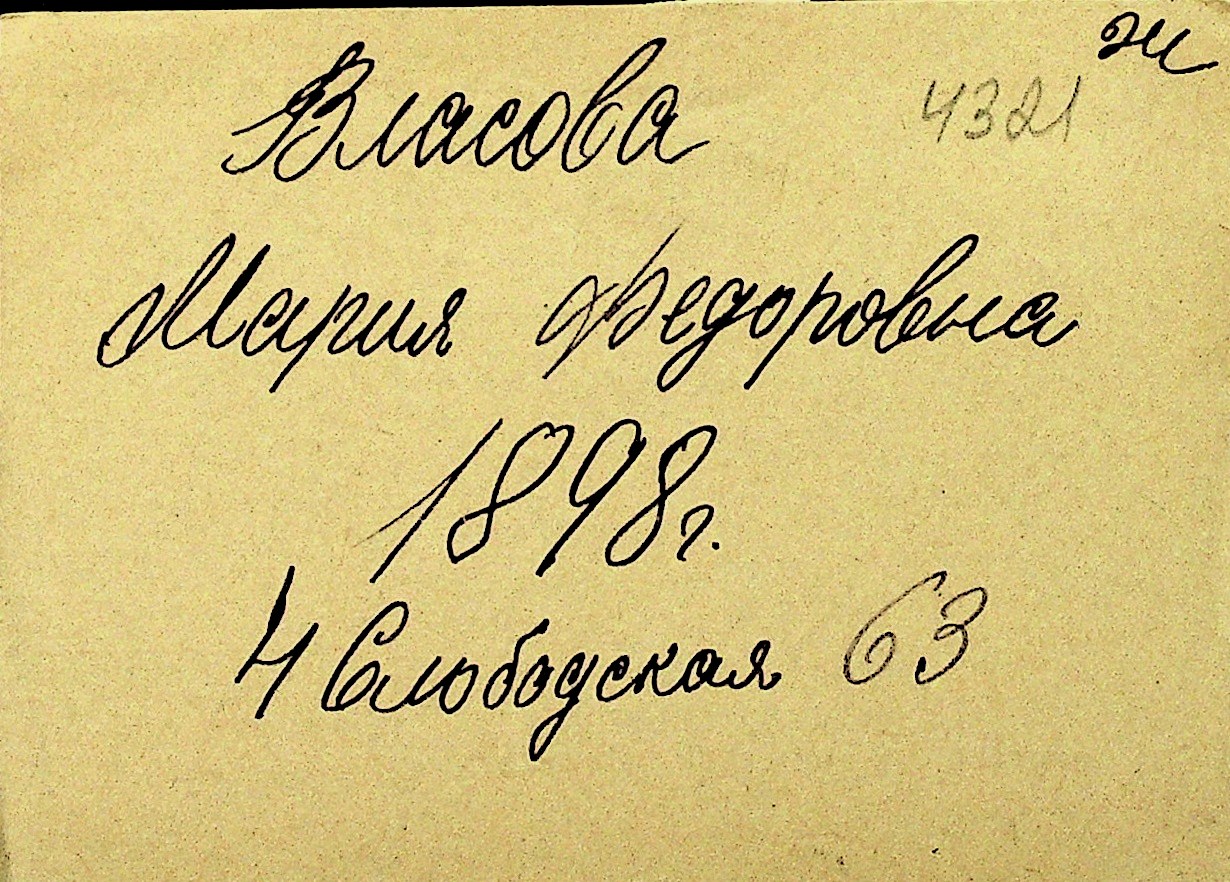 Власова
4321
Мария Федоровна
1898г.
4 Слободская 63